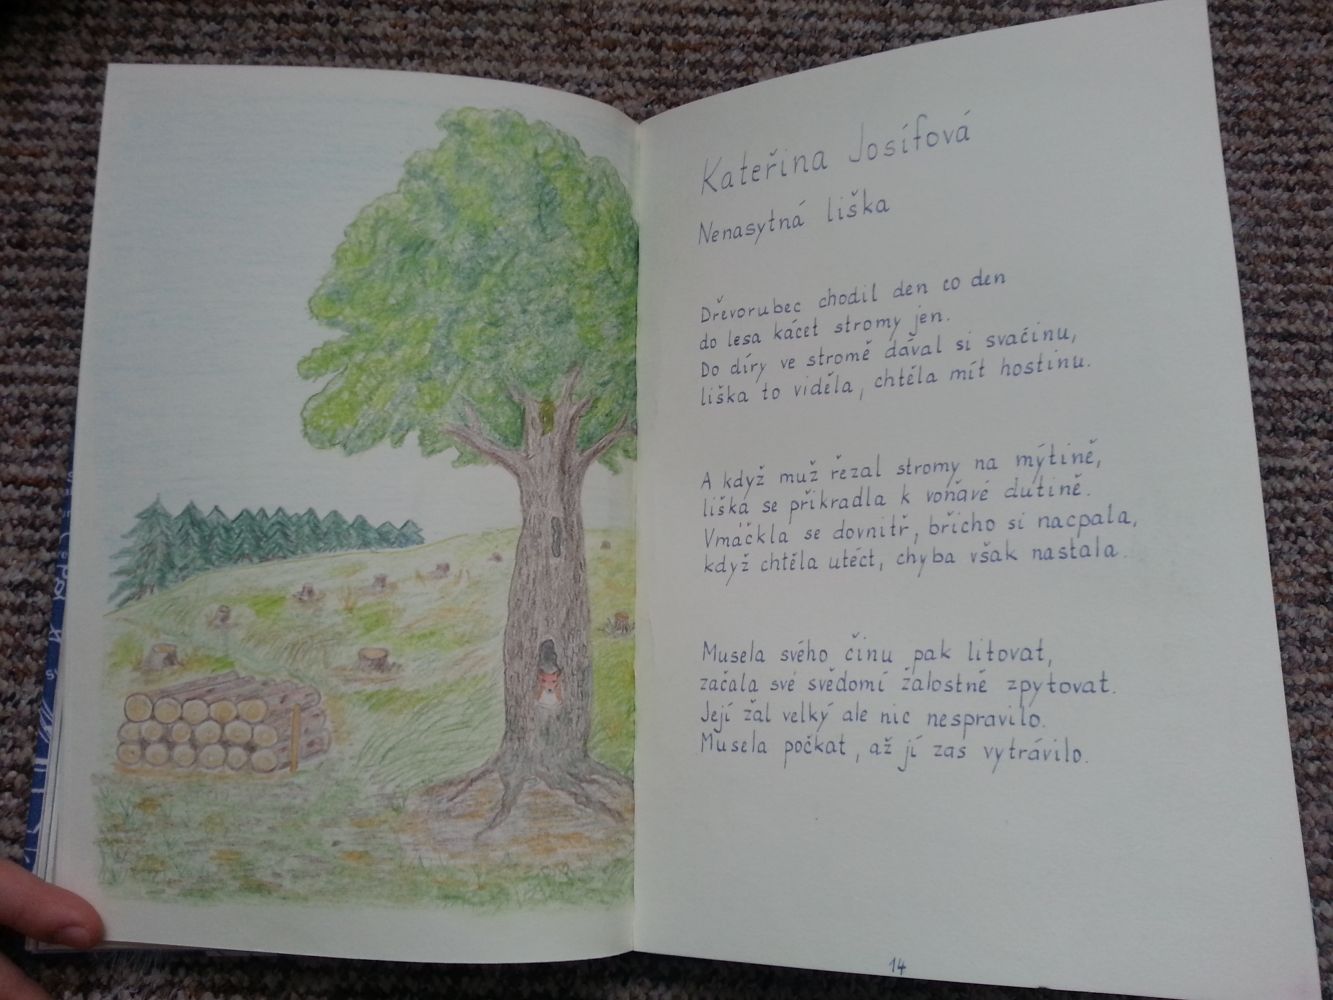 Kateřina Josífová
Nenasytná liška
Dřevorubec chodil den co den
do lesa kácet stromy jen.
Do díry ve stromě dával si svačinu,
liška to viděla, chtěla mít hostinu.
A když muž řezal stromy na mýtině,
liška se přikradla k voňavé dutině.
Vmáčkla se dovnitř, břicho si nacpala,
když chtěla utéct, chyba však nastala.
Musela svého činu pak litovat,
začala své svědomí žalostně zpytovat.
Její žal velký ale nic nespravilo.
Musela počkat, až jí zas vytrávilo.
14